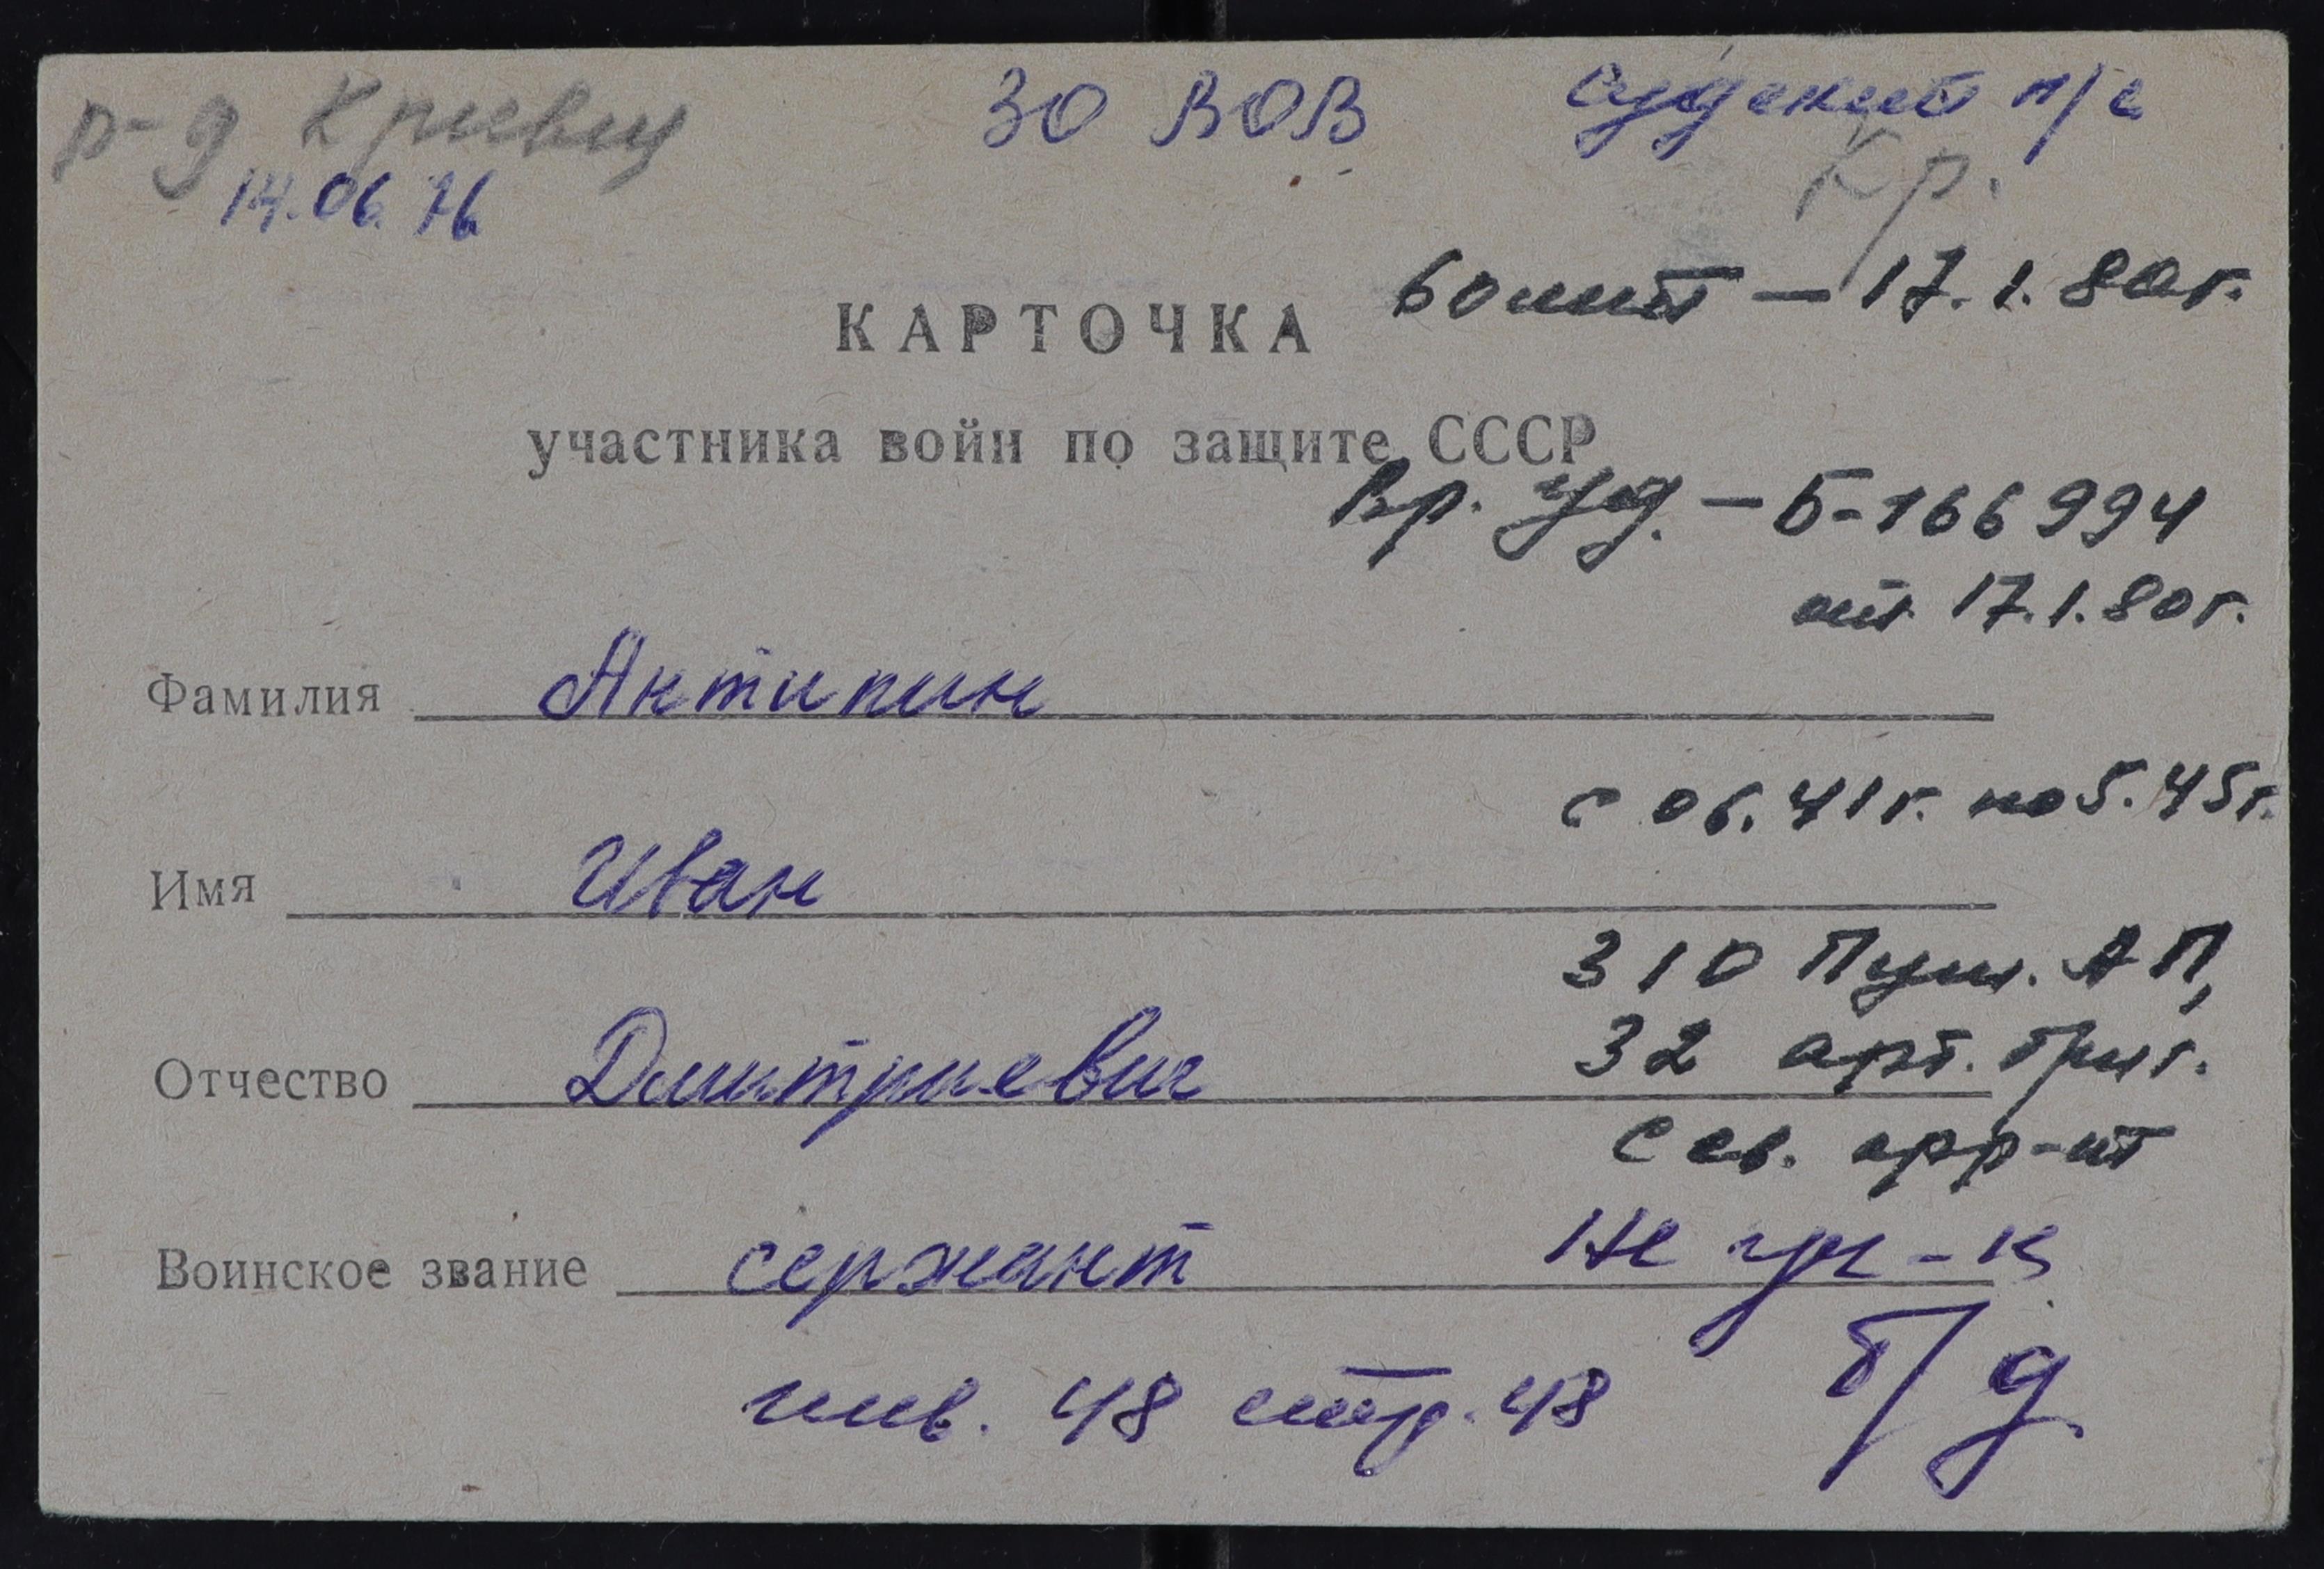 р-д Кривец
30 ВОВ
Судский п/с
Кр.
14.06.76
60 лет — 17.1.80г.
КАРТОЧКА
участника войн по защите СССР
Вр. уд. — Б-166994
от 17.1.80г.
Фамилия Антипин
с 06.41г. по 5.45г.
Имя Иван
310 Пуш. АП,
32 арт. бриг.
Отчество Дмитриевич
Сев. фр-нт
Воинское звание сержант
Не уч-к
б/д
инв. 48 стр. 48